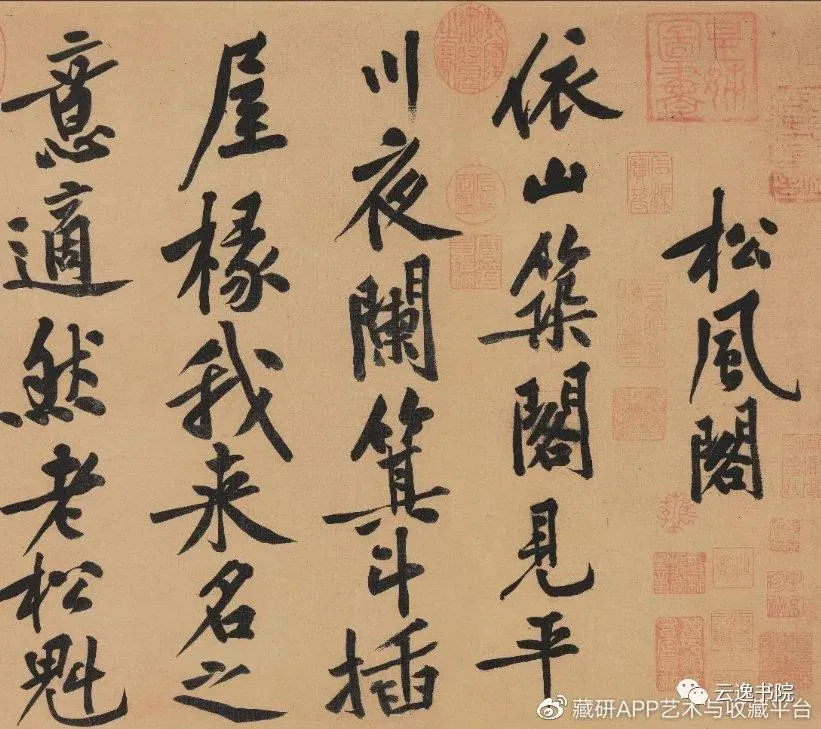 松風閣
依山築閣見平
川夜闌箕斗插
屋椽我来名之
意適然老松魁
云逸书院
藏研APP艺术与收藏平台